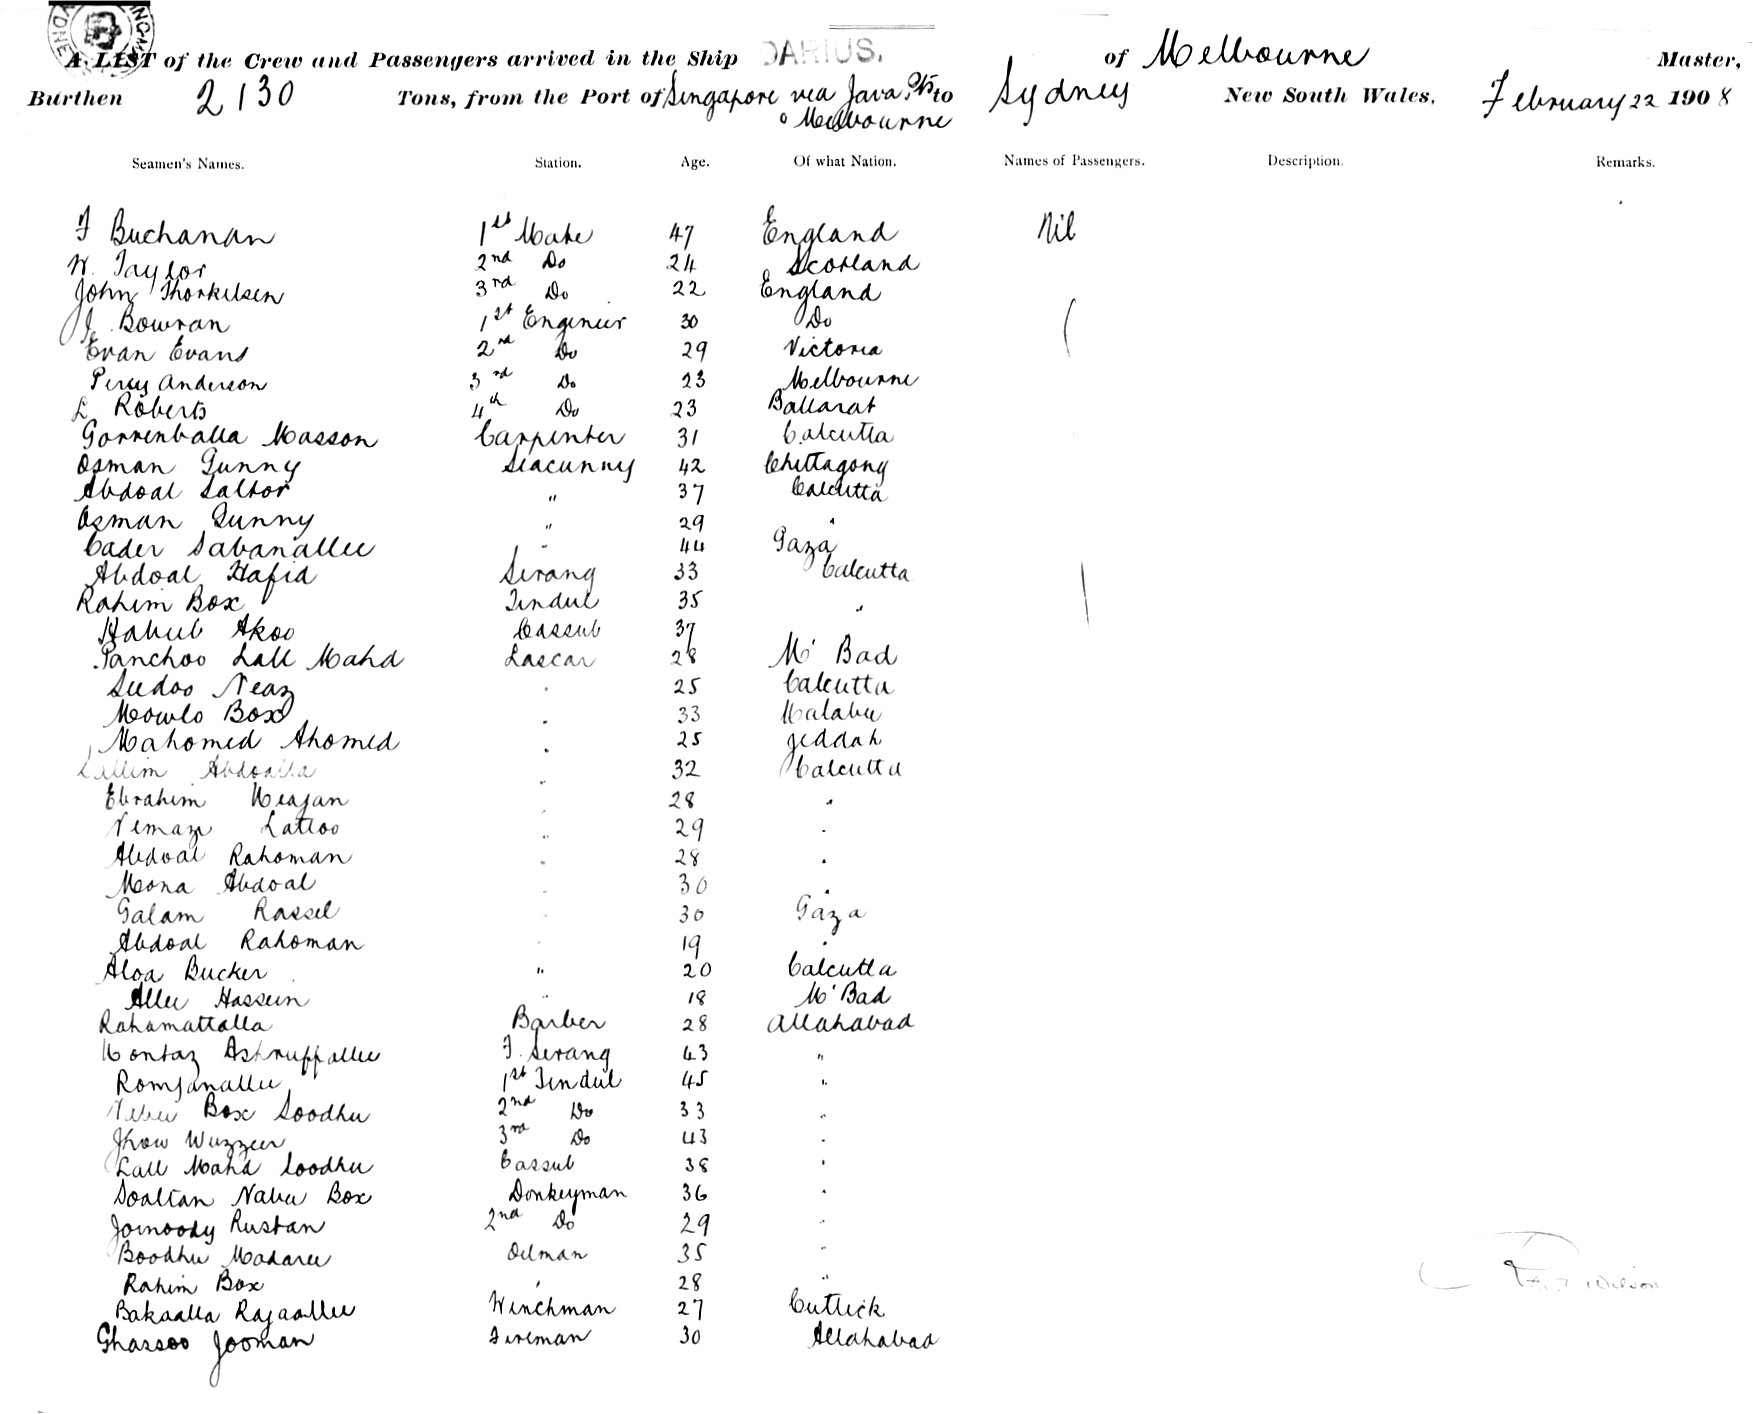 A LIST of the Crew and Passengers arrived in the Ship DARIUS. of Melbourne Master,
Burthen 2130 Tons, from the Port of Singapore via Java Pts to Sydney New South Wales, February 22 1908
Melbourne
Seamen's Names. Station. Age. Of what Nation. Names of Passengers. Description. Remarks.
F Buchanan 1st Mate 47 England Nil
W. Taylor 2nd Do 24 Scotland
John Thorkilsen 3rd Do 22 England
J. Bowran 1st Engineer 30 Do
Evan Evans 2nd Do 29 Victoria
Percy Anderson 3rd Do 23 Melbourne
L Roberts 4th Do 23 Ballarat
Gorrenballa Masson Carpenter 31 Calcutta
Osman Gunny Seacunny 42 Chittagong
Abdoal Sattor " 37 Calcutta
Osman Gunny " 29 "
Cader Sabanallee " 44 Gaza
Abdoal Hafid Serang 33 Calcutta
Rahim Box Tindul 35 "
Habub Akoo Cassub 37
Panchoo Lall Mahd Lascar 28 M' Bad
Sudoo Neaz " 25 Calcutta
Mowlo Box " 33 Malabu
Mahomed Ahomed " 25 Jeddah
Sallim Abdoalla " 32 Calcutta
Ebrahim Meajan " 28 "
Nemazi Lattoo " 29 "
Abdoal Rahoman " 28 "
Mona Abdoal " 30 "
Galam Rassel " 30 Gaza
Abdoal Rahoman " 19 "
Aloa Bucker " 20 Calcutta
Allee Hassein " 18 M' Bad
Rahamattalla Barber 28 Allahabad
Montaz Ashruffallee F. Serang 43 "
Romjanallee 1st Tindul 45 "
Nebu Box Soodhu 2nd Do 33 "
Jhow Wuzzeer 3rd Do 43 "
Lall Mahd Soodhu Cassub 38 "
Soaltan Nabu Box Donkeyman 36 "
Joinoody Rustan 2nd Do 29 "
Boodhu Madaree Oilman 35 "
Rahim Box " 28 "
Wilson
Bakaalla Rajaallee Winchman 27 Cuttick
Ghassoo Jooman Fireman 30 Allahabad